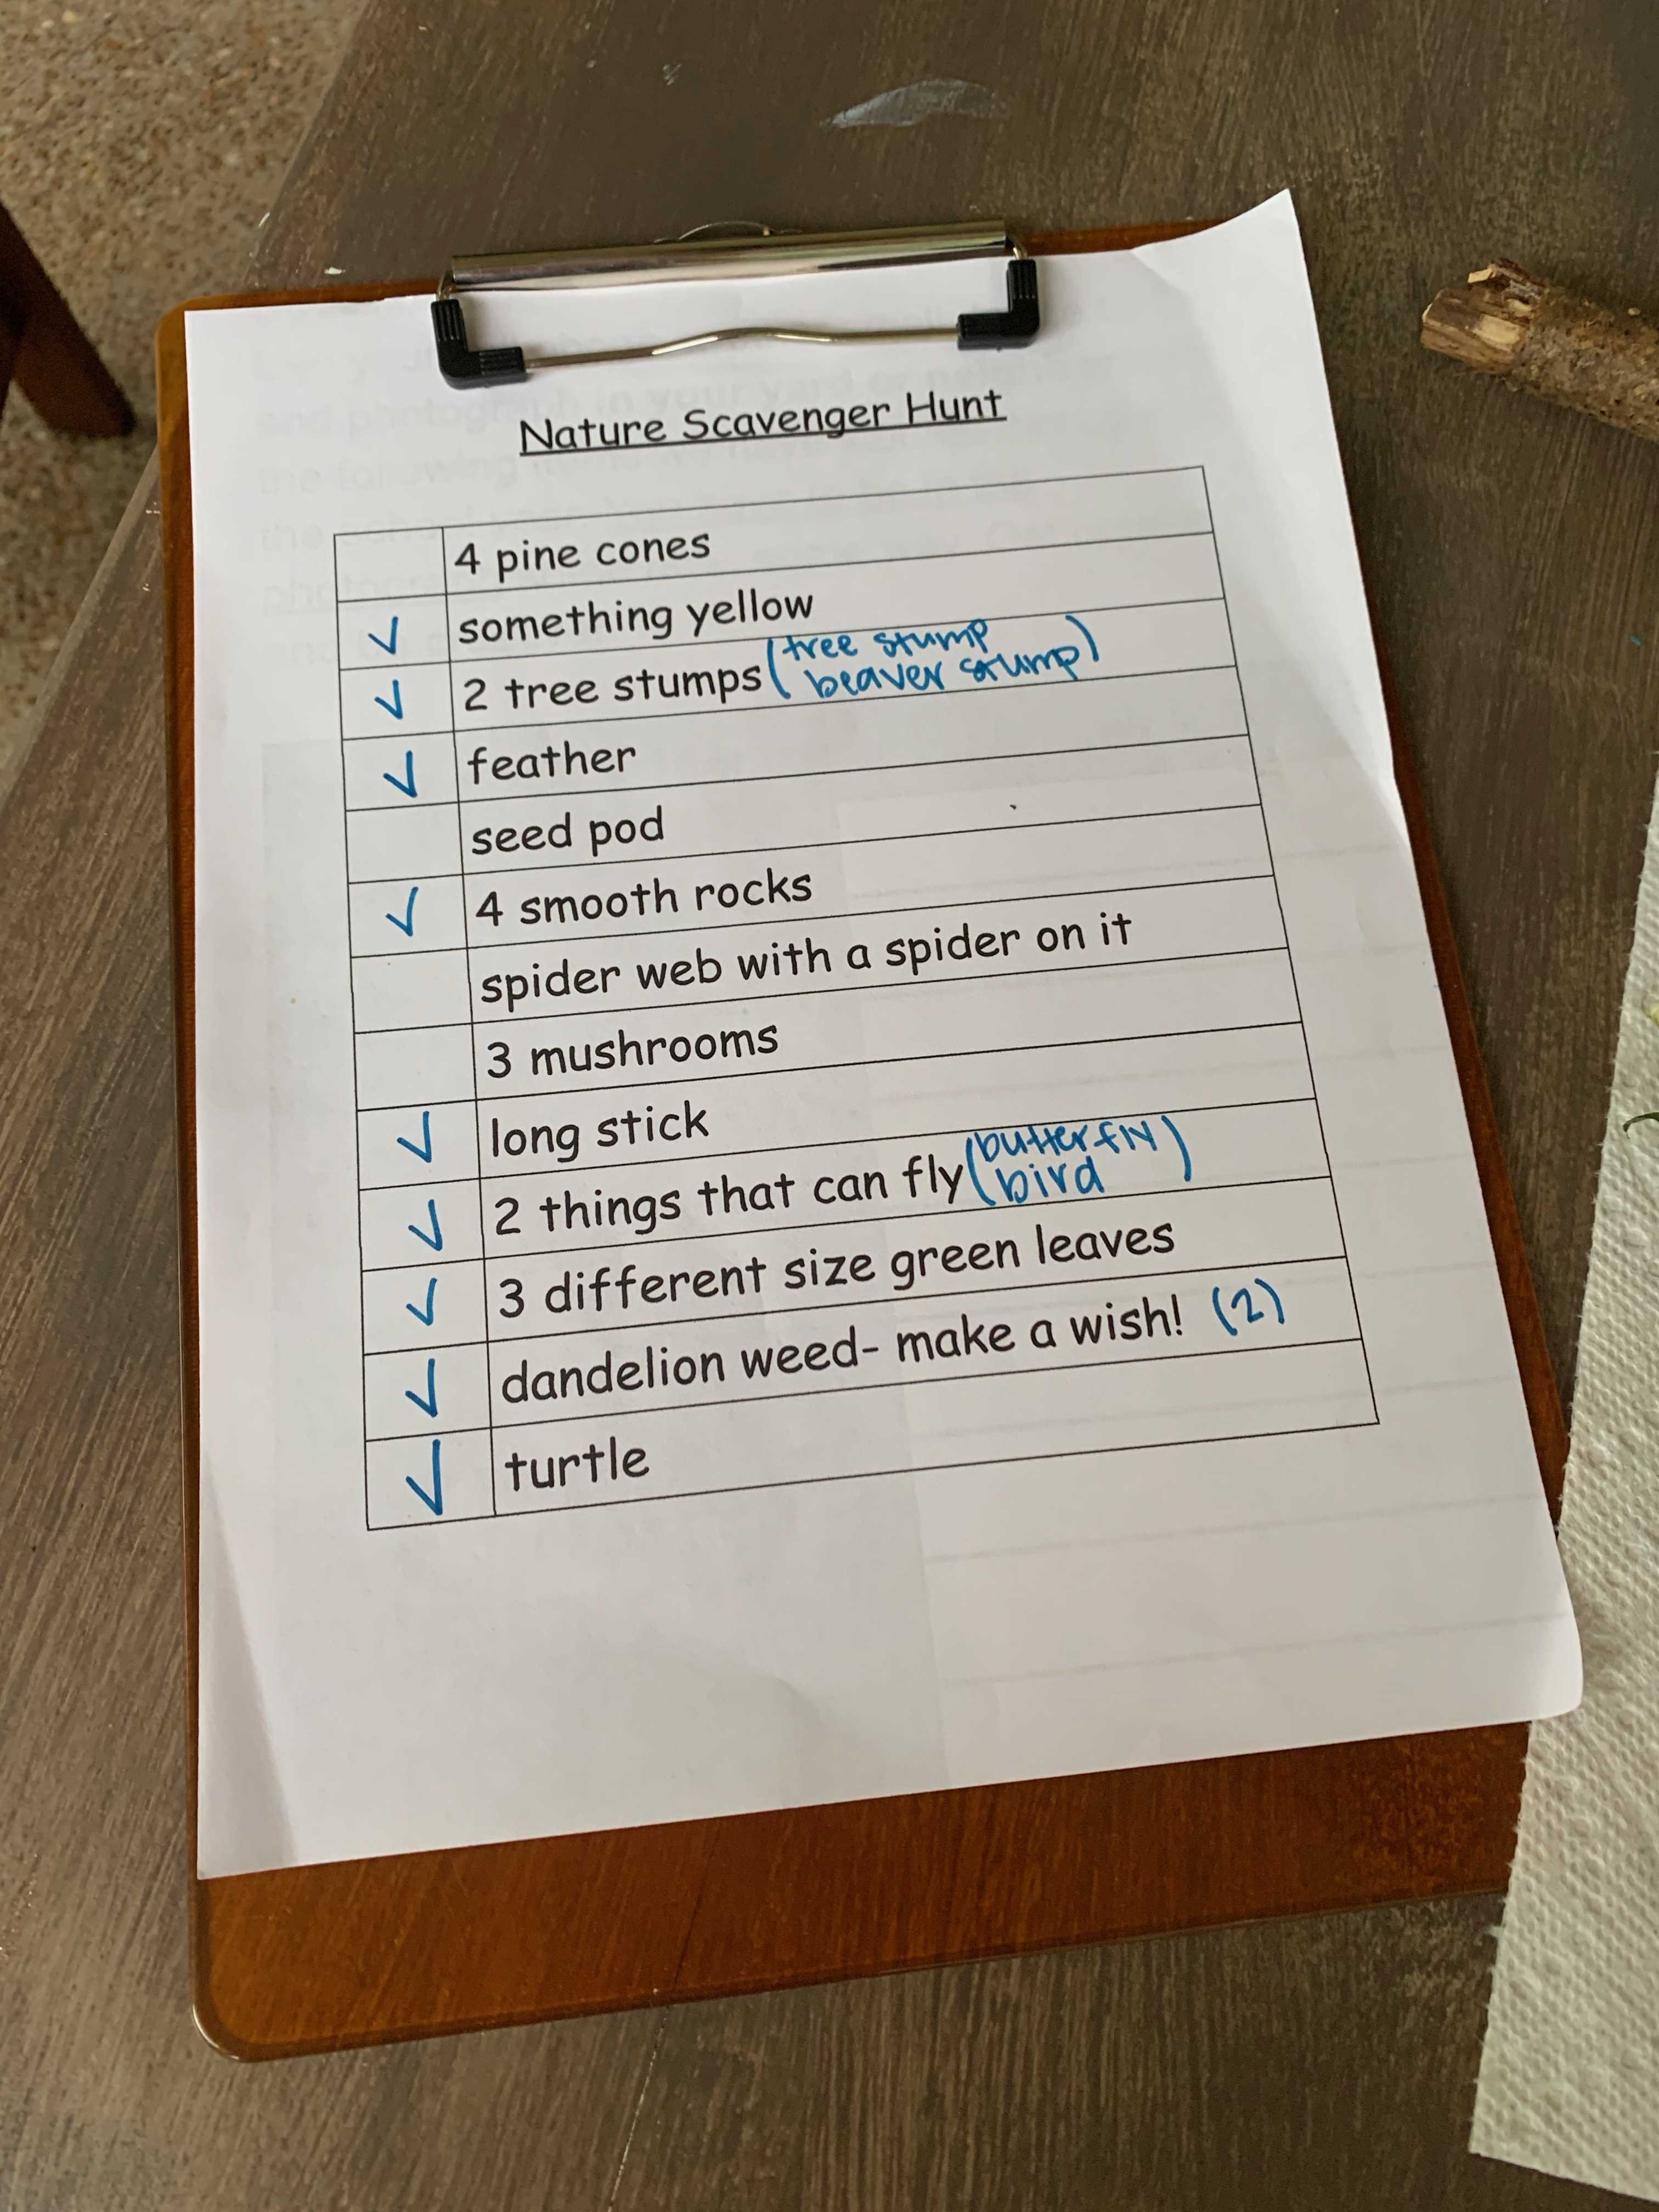 Nature Scavenger Hunt
4 pine cones
✓ something yellow
✓ 2 tree stumps (tree stump
beaver stump)
✓ feather
seed pod
✓ 4 smooth rocks
spider web with a spider on it
3 mushrooms
✓ long stick
✓ 2 things that can fly (butterfly
bird)
✓ 3 different size green leaves
✓ dandelion weed- make a wish! (2)
✓ turtle